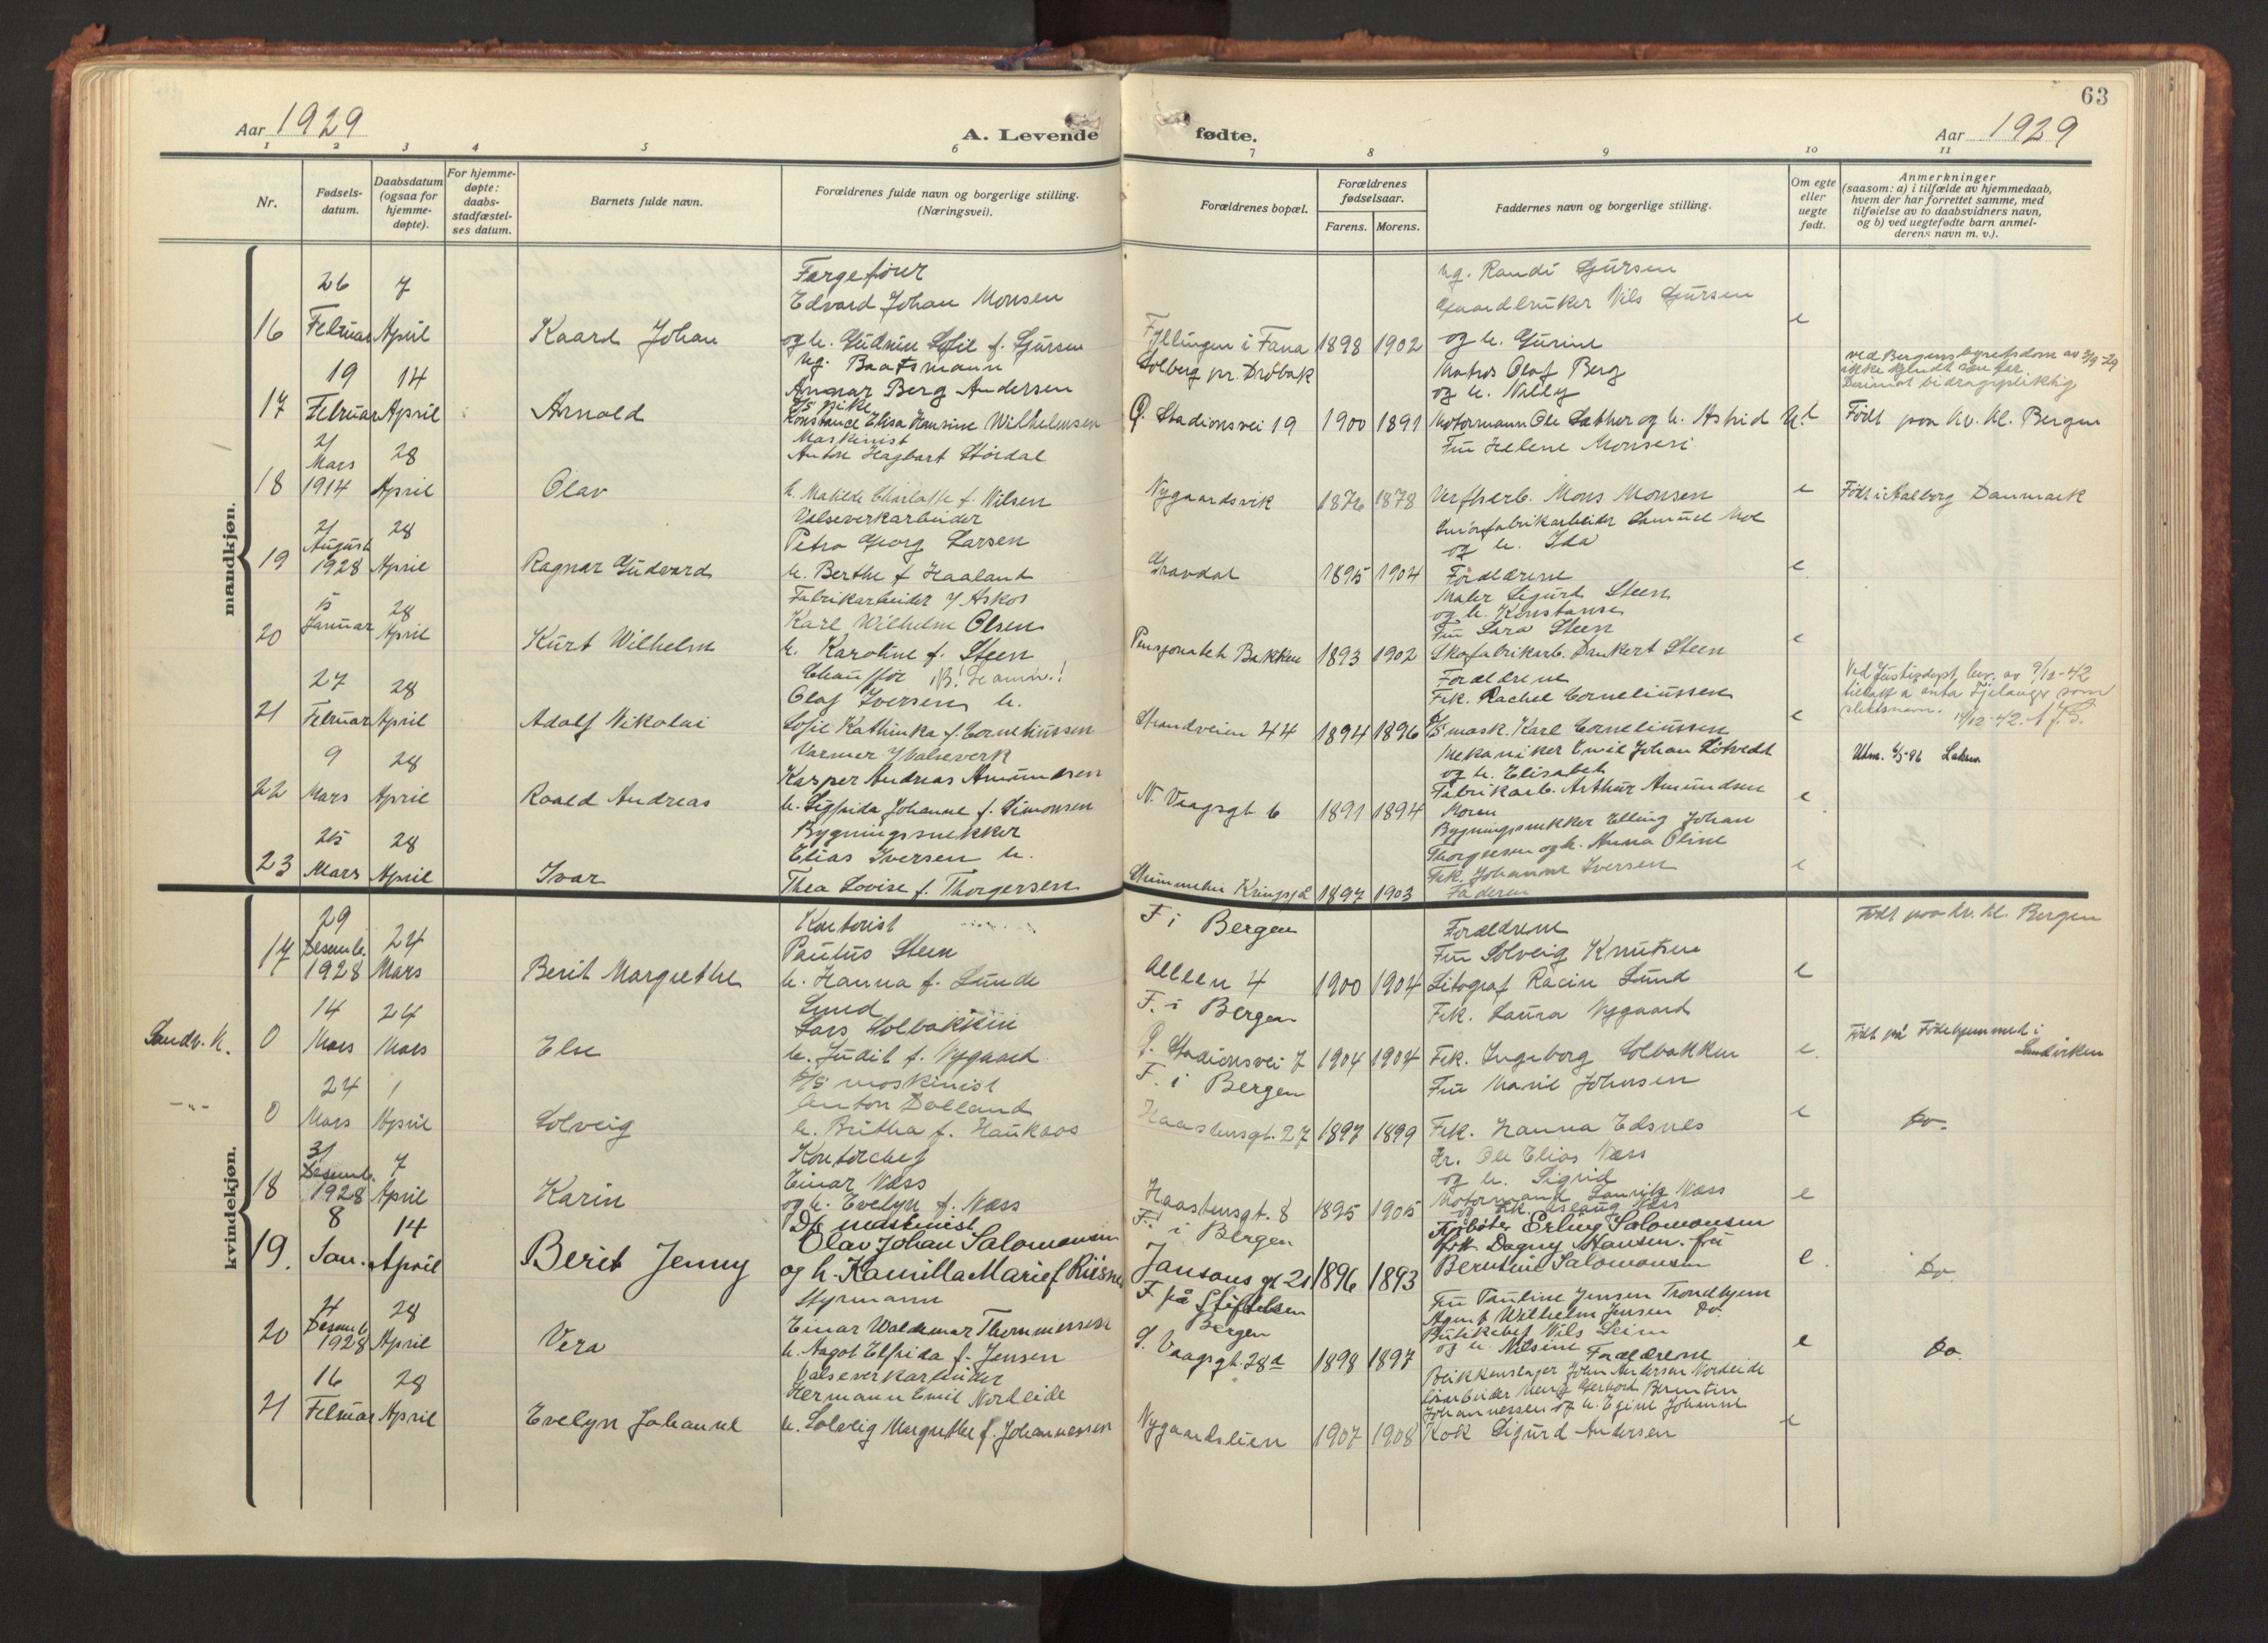 63
Aar 1929
A. Levende fødte.
Aar 1929
1 2 3 4 5 6 7 8 9 10 11
Nr.
Fødsels-
datum.
Daabsdatum
(ogsaa for
hjemme-
døpte).
For hjemme-
døpte:
daabs-
stadfæstel-
ses datum.
Barnets fulde navn.
Forældrenes fulde navn og borgerlige stilling.
(Næringsvei).
Forældrenes bopæl.
Forældrenes
fødselsaar.
Farens. Morens.
Faddernes navn og borgerlige stilling.
Om egte
eller
uegte
født.
Anmerkninger
(saasom: a) i tilfælde av hjemmedaab,
hvem der har forrettet samme, med
tilføielse av to daabsvidners navn,
og b) ved uegtefødte barn anmel-
derens navn m. v.).
mandkjøn.
26 7
16 Februar April
Kaard Johan
Edvard Johan Monsen
og h. Gudrun Sofie f. Gjursen
Fyllingen i Fana 1898 1902
Ug. Randi Gjursen
Gaardbruker Nils Gjursen
og h. Gurine
e
19 14
17 Februar April
Arnold
Ug. Baatsmann
Angnar Berg Andersen
og pike
Konstance Elisa Hansine Wilhelmsen
Solberg pr. Drøbak
G. Stadionsvei 19 1900 1891
Matros Olaf Berg
og h. Nelly
Motormann Ole Sæther og h. Astrid
ved Bergens byretsdom av 3/9-29
ikke kjendt som far.
Derimot bidragspliktig
Født paa Kv. Kl. Bergen
21
Mars 28
18 1914 April
Olav
Maskinist
Anton Hagbart Størdal
h. Matilde Charlotte f. Nilsen
Nygaardsvik 1876 1878
Fru Helene Monsen
Verftsarb. Mons Monsen
e
Født i Aalborg Danmark
21
August 28
19 1928 April
Ragnar Gudvard
Valseverkarbeider
Petro Georg Larsen
h. Berthe f. Haaland
Gravdal 1895 1904
Smørfabrikarbeider Samuel Moe
og h. Ida
Forældrene
e
15 28
20 Januar April
Kurt Wilhelm
Fabrikarbeider
Karl Wilhelm Olsen
h. Karoline f. Steen
Pensjonatet Bakken 1893 1902
Maler Sigurd Steen
og h. Konstanse
Fru Sara Steen
Skofabrikarb. Dankert Steen
e
27 28
21 Februar April
Adolf Nikolai
Chauffør
Olaf Iversen h.
Sofie Kathinka f. Corneliussen
Strandveien 44 1894 1896
Forældrene
Frk. Rachel Corneliussen
D/S mask. Karl Corneliussen
e
Ved Justisdept. bev. av 9/12-42
tillatt å anta Fjelanger som
slektsnavn. 14/12-42.
9 28
22 Mars April
Roald Andreas
Varmer i Valseverk
Kasper Andreas Amundsen
h. Sigfrida Johanne f. Simonsen
N. Vaagsgt. 6 1891 1894
Mekaniker Emil Johan Løtvedt
og h. Elisabet
Fabrikarb. Arthur Amundsen
Moren
e
Utm.
25 28
23 Mars April
Ivar
Bygningssnekker
Elias Iversen h.
Thea Lovise f. Thorgersen
1897 1903
Bygningssnekker Elling Johan
Thorgersen og h. Anna Oline
Frk. Johanne Iversen
Faderen
e
kvindekjøn.
29
Desemb. 24
17 1928 Mars
Berit Margrethe
Kontorist
Paulus Steen
h. Hanna f. Lunde
F. i Bergen
Alleen 4 1900 1904
Forældrene
Fru Solveig Knutsen
Litograf Racin Lund
e
Født paa Kv. Kl. Bergen
14 24
Sandv. K. 0 Mars Mars
Else
Smed
Lars Solbakken
h. Judit f. Nygaard
F. i Bergen
G. Stadionsvei 7 1904 1904
Frk. Laura Nygaard
Frk. Ingeborg Solbakken
e.
Født på Fødehjemmet i
Sandviken
24 1
-"- 0 Mars April
Solveig
D/S maskinist
Anton Dolland
h. Britha f. Haukaas
F. i Bergen
Haastensgt. 27 1897 1899
Fru Marie Johnsen
Frk. Hanna Edsnes
e
Do.
31
Desemb. 7
18 1928 April
Karin
Kontorchef
Einar Næss
og h. Evelyn f. Næss
Haastensgt. 8 1895 1905
Hr. Ole Elias Næss
og h. Sigrid
Motormand Lauritz Næss
og frk. Aslaug Næss
e
8 14
19. Jan. April
Berit Jenny
D/s maskinist
Olav Johan Salomonsen
og h. Kamilla Marie f. Riisnes
F. i Bergen
Jansons gt 21 1896 1893
Erling Salomonsen
frk. Dagny Hansen. fru
Berntine Salomonsen
e.
Do.
4
Desemb. 28
20 1928 April
Vera
Styrmann
Einar Waldemar Thommessen
h. Aagot Elfrida f. Jensen
F. på Stiftelsen
Bergen
S. Vaagsgt. 28a 1898 1897
Fru Pauline Jensen Trondhjem
Agent Wilhelm Jensen Do.
Butikchef Nils Leim
og h. Nilsine Forældrene
e
Do.
16 28
21 Februar April
Evelyn Johanne
Valseverkarbeider
Hermann Emil Nordeide
h. Solveig Margrethe f. Johannessen
Nygaardslien 1907 1908
Blikkenslager John Andersen Nordeide
Johannessen og h. Egine Johanne
Kok Sigurd Andersen
e